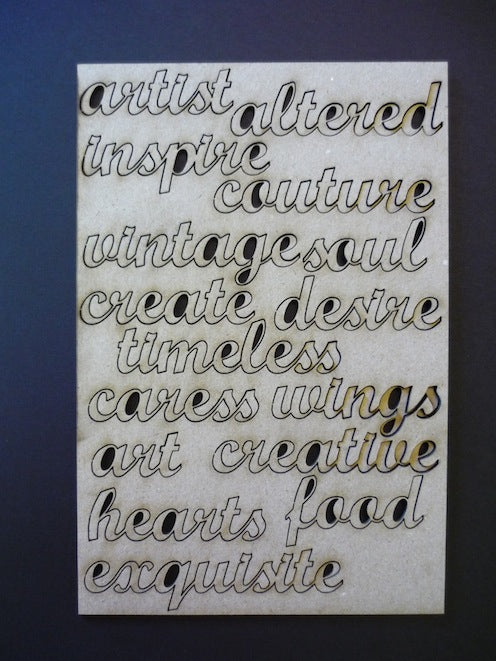 artist altered
inspire
couture
vintage soul
create desire
timeless
caress wings
art creative
hearts food
exquisite